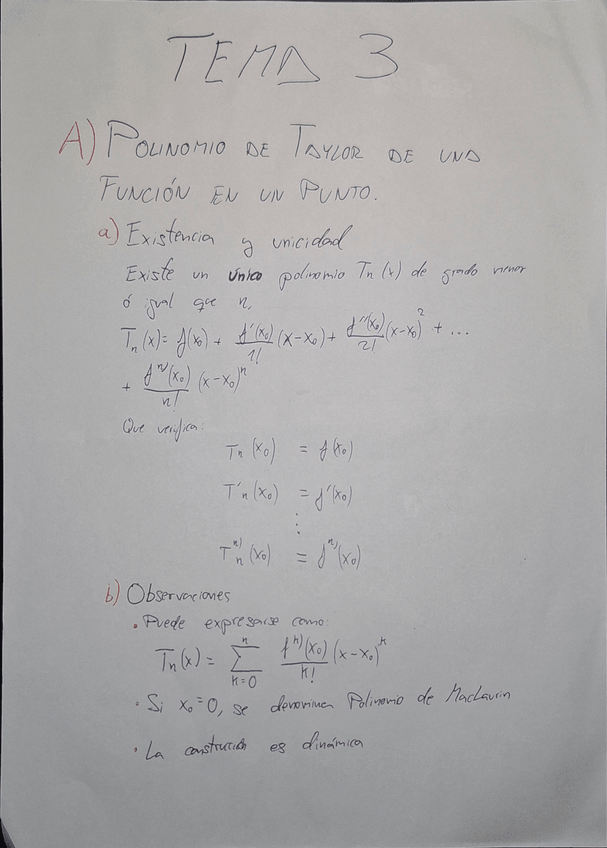 TEMA 3
A) POLINOMIO DE TAYLOR DE UNA
FUNCIÓN EN UN PUNTO.
a) Existencia y unicidad
Existe un único polinomio Tn(x) de grado menor
ó igual que n,
Tn(x) = f(x₀) + f'(x₀)/1! (x-x₀) + f''(x₀)/2! (x-x₀)² + ...
+ fⁿ⁾(x₀)/n! (x-x₀)ⁿ
Que verifica:
Tn(x₀) = f(x₀)
T'n(x₀) = f'(x₀)
⋮
Tnⁿ⁾(x₀) = fⁿ⁾(x₀)
b) Observaciones
. Puede expresarse como:
Tn(x) = Σ_{k=0}^{n} fᵏ⁾(x₀)/k! (x-x₀)ᵏ
· Si x₀=0, se denomina Polinomio de MacLaurin
· La construcción es dinámica